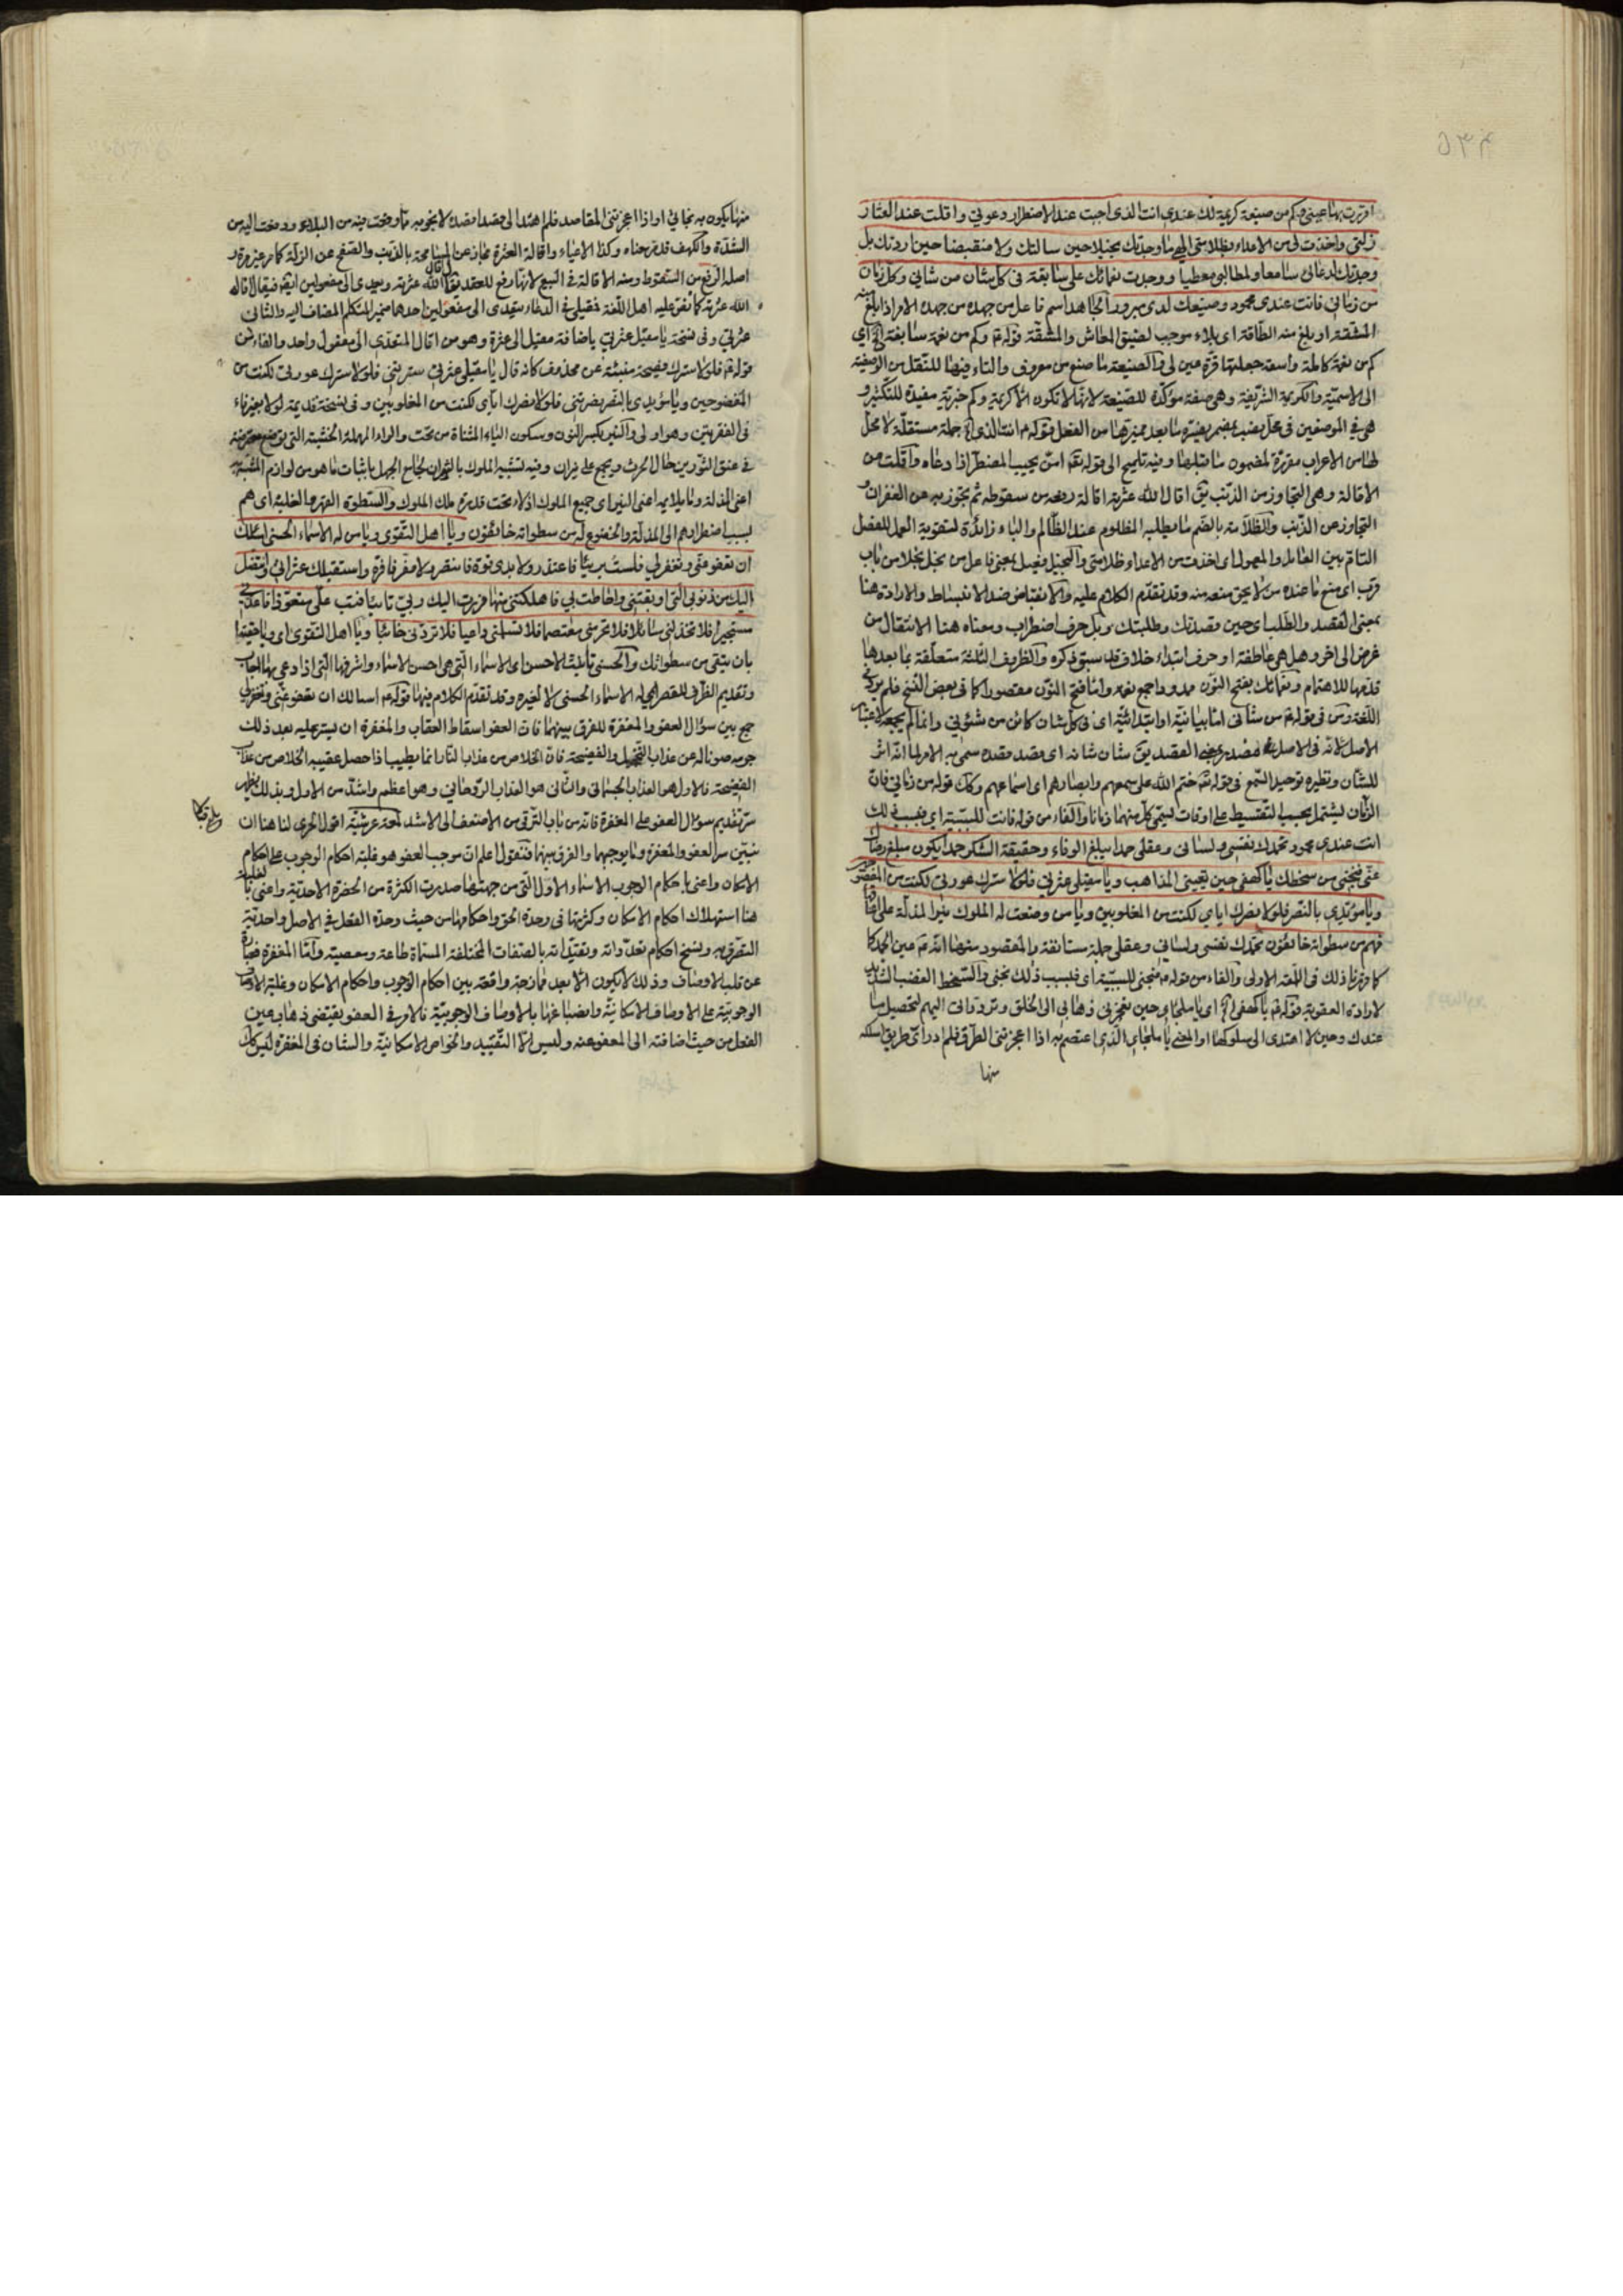 اقررت بها عيني وكم من صنيعة كريمة لك عندي انت الذي اجبت عند الاضطرار دعوتي واقلت عند العثار
زلتي واخذت لي من الاعداء بظلامتي الهي ما وجدتك بخيلا حين سالتك ولا منقبضا حين اردتك بل
وجدتك لدعائي سامعا ولمطالبي معطيا ووجدت نعماك علي سابغة في كل شان من شاني وكل زمان
من زماني فانت عندي محمود وصنيعك لدي مبرور الجاهد اسم فاعل من جهده من جهده الامر اذا بلغ منه
المشقة او بلغ منه الطاقة اي بلاء موجب لضيق المعاش والمشقة قوله ع وكم من نعمة سابغة الخ اي
كم من نعمة كاملة واسعة جعلتها قرة عين لي والصنيعة ما صنع من معروف والتاء فيها للنقل من الوصفية
الى الاسمية والكريمة الشريفة وهي صفة مؤكدة للصنيعة لانها لا تكون الا كريمة وكم خبرية مفيدة للتكثير و
هي في الموضعين في محل نصب بمضمر يفسره ما بعد مميزها من الفعل قوله ع انت الذي الخ جملة مستقلة لا محل
لها من الاعراب مقررة لمضمون ما قبلها وفيه تلميح الى قوله تع امن يجيب المضطر اذا دعاه واقلت من
الاقالة وهي التجاوز من الذنب يق اقال الله عثرته اقالة رفعه من سقوطه ثم تجوز به عن الغفران و
التجاوز عن الذنب والظلامة بالضم ما يطلبه المظلوم عند الظالم والباء زائدة لتقوية العمل للفصل
التام بين العامل والمعمول اي اخذت من الاعداء ظلامتي والبخيل فعيل بمعنى فاعل من بخل بخلا من باب
قرب اي منع ما عنده من لا يحق منعه منه وقد تقدم الكلام عليه والانقباض ضد الانبساط والارادة هنا
بمعنى القصد والطلب اي حين قصدتك وطلبتك وبل حرف اضراب ومعناه هنا الانتقال من
غرض الى اخر وهل هي عاطفة او حرف ابتداء خلاف قد سبق ذكره والظروف الثلثة متعلقة بما بعدها
قدمها للاهتمام ونعمائك بفتح النون ممدود اجمع نعمة واما فتح النون مقصورا كما في بعض النسخ فلم يرد في
اللغة ومن في قوله ع من شاني اما بيانية او ابتدائية اي في كل شان كائن من شئوني وانما لم يجمعه لاعتبار
الاصل لانه في الاصل مصدر بمعنى القصد يق شان شانه اي قصد قصده سمي به الامر لما انه اثر
للشان ونظيره توحيد السمع في قوله تع ختم الله على سمعهم وابصارهم اي اسماعهم وكك قوله من زماني فان
الزمان يشتمل بحسب التقسيط على اوقات يسمى كل منهما زمانا والفاء من قوله فانت للسببية اي فبسبب ذلك
انت عندي محمود تحمدك نفسي ولساني وعقلي حمدا يبلغ الوفاء وحقيقة الشكر حمدا يكون مبلغ رضاك
عني فنجني من سخطك يا كهفي حين تعييني المذاهب ويا مقيلي عثرتي فلولا سترك عورتي لكنت من المفضوحين
ويا مؤيدي بالنصر فلولا نصرك اياي لكنت من المغلوبين ويا من وضعت له الملوك نير المذلة على اعناقها
فهم من سطواته خائفون تحمدك نفسي ولساني وعقلي جملة مستانفة والمقصود منها انه ع عين الحمد كما
كما قرر ذلك في اللمعة الاولى والفاء من قوله ع فنجني للسببية اي فبسبب ذلك نجني والسخط الغضب الشديد
لارادة العقوبة قوله ع يا كهفي الخ اي يا ملجاي حين تعجزني ذهابي الى الخلق وترددات اليهم لتحصيل ما
عندك وحين لا اهتدى الى سلوكها او المعنى يا ملجاي الذي اعتصم به اذا اعجزتني الطرق فلم ادر اي طريق اسلكه
منها
منها يكون به نجاتي او اذا اعجزتني المقاصد فلم اهتد الى مقصد اقصدك لانجو به مما وقعت فيه من البلاء و دفعت اليه من
الشدة والكهف قد مر معناه وكذا الاعياء واقالة العثرة مجاز عن المسامحة بالذنب والصفح عن الزلة كما مر غير مرة و
اصله الرفع من السقوط ومنه الاقالة في البيع لانها رفع للعقد يق اقال الله عثرته ويعدى الى مفعولين ايضا فيقال اقاله
الله عثرته كما نص عليه اهل اللغة فمقيلي في الدعاء متعدى الى مفعولين احدهما ضمير المتكلم المضاف اليه والثاني
عثرتي وفي نسخة يا مقيل عثرتي باضافة مقيل الى عثرة وهو من اقال المتعدي الى مفعول واحد والفاء من
قوله ع فلولا سترك فصيحة منبئة عن محذوف كانه قال يا مقيلي عثرتي سترتني فلولا سترك عورتي لكنت من
المفضوحين ويا مؤيدي بالنصر نصرتني فلولا نصرك اياي لكنت من المغلوبين وفي نسخة قديمة لولا بغير فاء
في الفقرتين وهو اولى والنير بكسر النون وسكون الياء المثناة من تحت والراء المهملة الخشبة التي توضع معترضة
في عنق الثورين حال الحرث ويجمع على نيران وفيه تشبيه الملوك بالثيران بجامع الجهل باثبات ما هو من لوازم المشبه به
اعني المذلة وما يلايمه اعني النير اي جميع الملوك اذلاء تحت قدرة ملك الملوك والسطوة القهر والغلبة اي هم
بسبب اضطرارهم الى المذلة والخضوع له من سطواته خائفون ويا اهل التقوى ويا من له الاسماء الحسنى اسئلك
ان تعفو عني وتغفر لي فلست بريئا فاعتذر ولا بذي قوة فانتصر ولا مفر لي فافر واستقيلك عثراتي واتنصل
اليك من ذنوبي التي اوبقتني واحاطت بي فاهلكتني منها فررت اليك ربي تائبا فتب علي متعوذا فاعذني
مستجيرا فلا تخذلني سائلا فلا تحرمني معتصما فلا تسلمني داعيا فلا تردني خائبا ويا اهل التقوى اي ويا حقيقا
بان يتقى من سطواتك والحسنى تانيث الاحسن اي الاسماء التي هي احسن الاسماء واشرفها التي اذا دعي بها اجاب
وتقديم الظرف للقصر اي له الاسماء الحسنى لا لغيره وقد تقدم الكلام فيها قوله ع اسالك ان تعفو عني وتغفر لي
جمع بين سؤال العفو والمغفرة للفرق بينهما فان العفو اسقاط العقاب والمغفرة ان يستر عليه بعد ذلك
جرمه صونا له عن عذاب التخجيل والفضيحة فان الخلاص من عذاب النار انما يطيب اذا حصل عقيبه الخلاص من عذاب
الفضيحة فالاول هو العذاب الجسماني والثاني هو العذاب الروحاني وهو اعظم واشد من الاول وبذلك يظهر
سر تقديم سؤال العفو على المغفرة فانه من باب الترقي من الاضعف الى الاشد لمعة عرشية اقول الحري لنا هنا ان
نبين سر العفو والمغفرة وما يوجبهما والفرق بينهما فنقول اعلم ان موجب العفو هو غلبة احكام الوجوب على احكام
الامكان واعني باحكام الوجوب الاسماء الاول التي من جهتها صدرت الكثرة من الحضرة الاحدية واعني بالغلبة
هنا استهلاك احكام الامكان وكثرتها في وحدة الحق واحكامها من حيث وحدة الفعل في الاصل واحدية
التصرف به ونسخ احكام تعدداته وتقيداته بالصفات المختلفة المسماة طاعة ومعصية واما المغفرة فعبارة
عن قلب الاوصاف وذلك لا يكون الا بعد ممازجة واقعة بين احكام الوجوب واحكام الامكان وغلبة الاوصاف
الوجوبية على الاوصاف الامكانية وانصباغها بالاوصاف الوجوبية فالامر في العفو يقتضي ذهاب عين
الفعل من حيث اضافته الى المعفو عنه وليس الا التقييد والخواص الامكانية والشان في المغفرة ليس كذلك